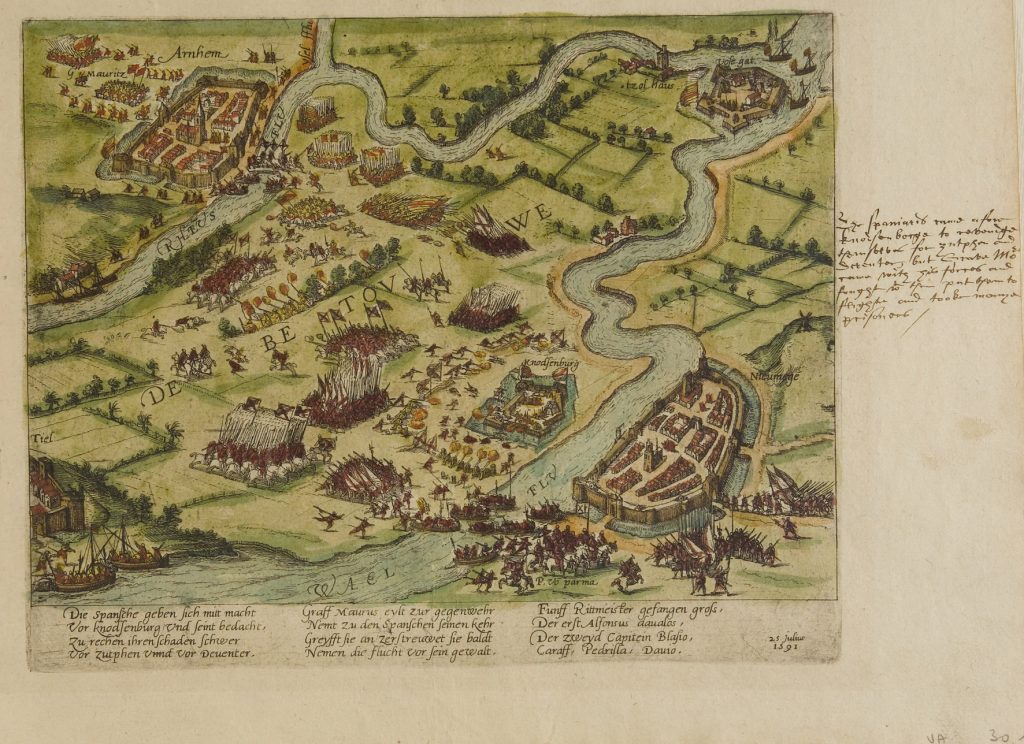 Arnhem
G. V Mauritz
tzol haus
RHEUS
WE
DE BE TOV
Knodsenburg
Nieumege
Tiel
FLV
WAEL
P. V parma
Die Spansche geben sich mitt macht
Vor Knodsenburg Vnd seint bedacht,
Zu rechen ihren schaden schwer
Vor Zutphen Vnnd vor Deuenter.
Graff Maurus eylt zur gegenwehr
Nemt zu den Spanschen seinen kehr
Greyfft sie an zerstreuwet sie baldt
Nemen die flucht vor sein gewalt.
Funff Rittmeister gefangen gross,
Der erst Alfonsus daualos,
Der zweyd Capitein Blasio,
Caraff, Pedrilla, Dauio.
25 Julius
1591
The Spaniards came afore
Knodsenborge to revenge
themselves for zutphen and
deventer, but Grave Mo
came with his forces and
fought them put them to
flyght and tooke manye
prisoners
VA 30